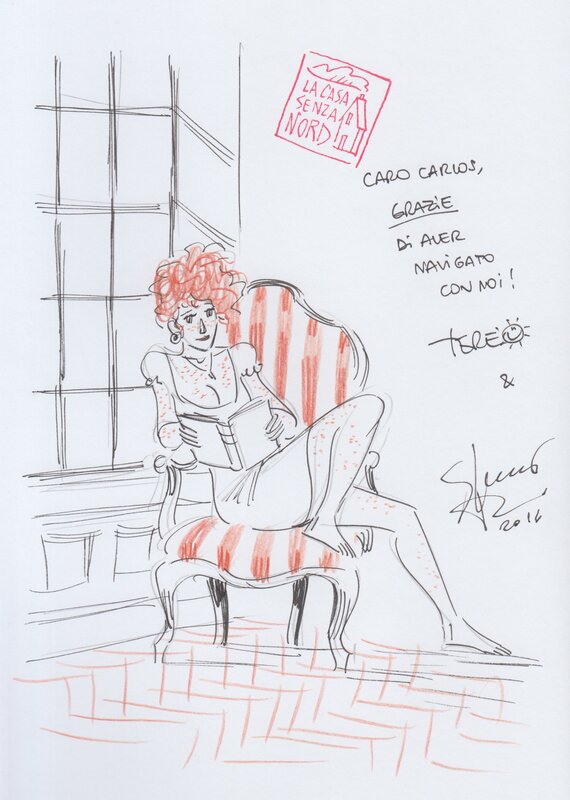 LA CASA
SENZA
NORD
CARO CARLOS,
GRAZIE
Di AVER
NAViGATO
CON NOi!
TERE
&
2016